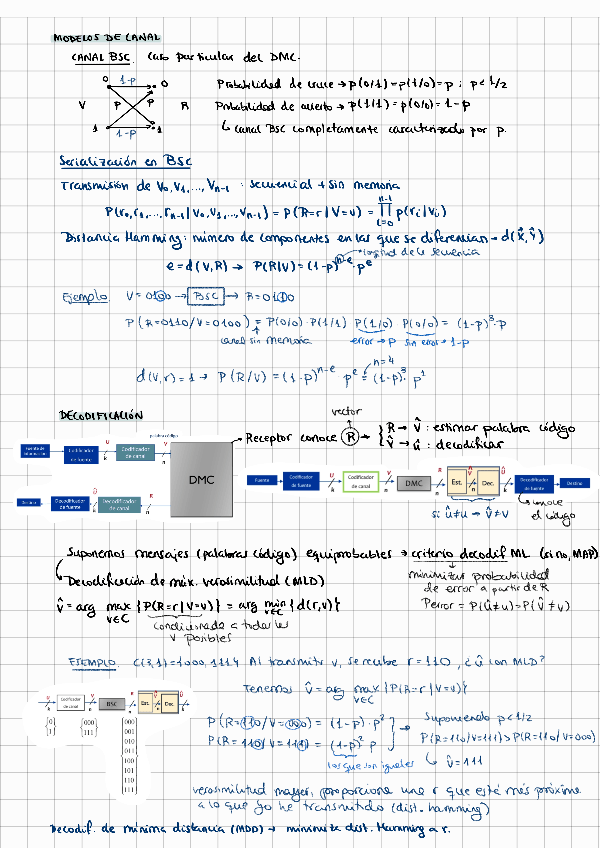 MODELOS DE CANAL
CANAL BSC. Caso particular del DMC.
0 1-p 0
V P P R
1 1-p 1
Probabilidad de cruce → p(0/1) = p(1/0) = p ; p < 1/2
Probabilidad de acierto → p(1/1) = p(0/0) = 1-p
↳ Canal BSC completamente caracterizado por p.
Serialización en BSC
Transmisión de V₀, V₁, ..., Vₙ₋₁ : secuencial + sin memoria
P(r₀, r₁, ..., rₙ₋₁ | V₀, V₁, ..., Vₙ₋₁) = P(R=r | V=v) = ∏ p(rᵢ|vᵢ)
n-1
i=0
Distancia Hamming: número de componentes en las que se diferencian → d(x̂, ŷ)
longitud de la secuencia
e = d(V,R) → P(R|V) = (1-p)ⁿ⁻ᵉ · pᵉ
Ejemplo V = 0100 → BSC → R = 0110
P(R=0110/V=0100) = P(0/0) · P(1/1) P(1/0) P(0/0) = (1-p)³ · p
canal sin memoria error → p sin error → 1-p
n=4
d(V,r) = 1 → P(R/V) = (1-p)ⁿ⁻ᵉ pᵉ = (1-p)³ p¹
DECODIFICACIÓN
vector
Receptor conoce R → { R → V̂ : estimar palabra código
V̂ → û : decodificar
palabra código
Fuente de información Codificador de fuente U k Codificador de canal V n
DMC
Destino Decodificador de fuente Û k Decodificador de canal R n
Fuente Codificador de fuente U k Codificador de canal V n DMC R n Est. V̂ n Dec. Û k Decodificador de fuente Destino
si û≠u → V̂≠V
conoce el código
Suponemos mensajes (palabras código) equiprobables → criterio decodif ML (si no, MAP)
Decodificación de máx. verosimilitud (MLD)
minimizar probabilidad
de error a partir de R
V̂ = arg max {P(R=r | V=v)} = arg min {d(r,v)}
v∈C v∈C
Perror = P(û≠u) = P(V̂≠v)
condicionada a todas las
V posibles
EJEMPLO. C(3,1) = {000, 111} Al transmitir v, se recibe r = 110, ¿û con MLD?
Tenemos V̂ = arg max {P(R=r | V=v)}
v∈C
U k Codificador de canal V n BSC R n Est. V̂ n Dec. Û k
{0
1}
{000
111}
{000
001
010
011
100
101
110
111}
P(R=110/V=000) = (1-p) · p²
P(R=110/V=111) = (1-p)² p
los que son iguales
Suponiendo p < 1/2
P(R=110/V=111) > P(R=110/V=000)
↳ V̂ = 111
verosimilitud mayor, proporciona una r que está más próxima
a lo que yo he transmitido (dist. hamming)
Decodif. de mínima distancia (MDD) → minimiza dist. Hamming a r.